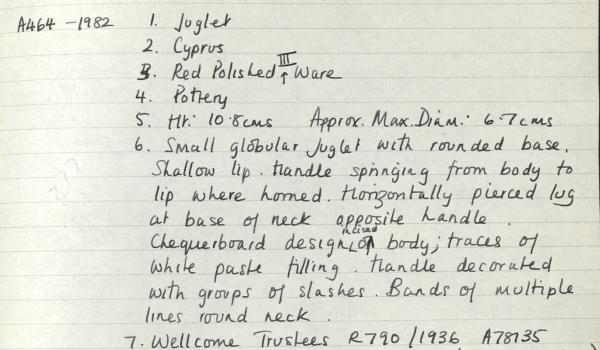 A464-1982 1. Juglet
2. Cyprus
3. Red Polished III Ware
4. Pottery
5. Ht: 10.8cms Approx. Max. Diam.: 6.7cms
6. Small globular juglet with rounded base.
Shallow lip. Handle springing from body to
lip where horned. Horizontally pierced lug
at base of neck opposite handle.
Chequerboard design incised on body; traces of
white paste filling. Handle decorated
with groups of slashes. Bands of multiple
lines round neck.
7. Wellcome Trustees R790/1936, A78135